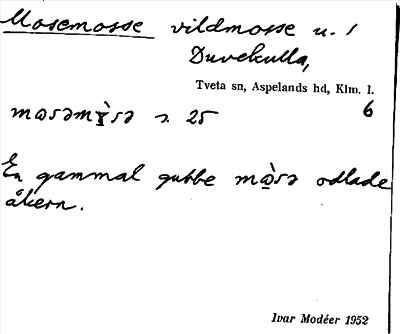 Mosemosse vildmosse u. /
Duvekulla,
Tveta sn, Aspelands hd, Klm. l.
6
25
En gammal gubbe mò̱sə odlade
åkern.
Ivar Modéer 1952